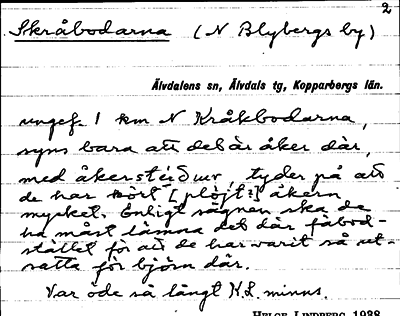 2
Skråbodarna (N Blybergs by)
Älvdalens sn, Älvdals tg, Kopparbergs län.
ungef. 1 km N Kråkbodarna,
syns bara att det är åker där,
med åkerstéður, tyder på att
de har kört [plöjt?] åkern
mycket. Enligt sägnen ska de
ha måst lämna det där fäbod-
stället för att de har varit så ut-
satta för björn där.
Var öde så långt H.L. minns.
HELGE LINDBERG 1938